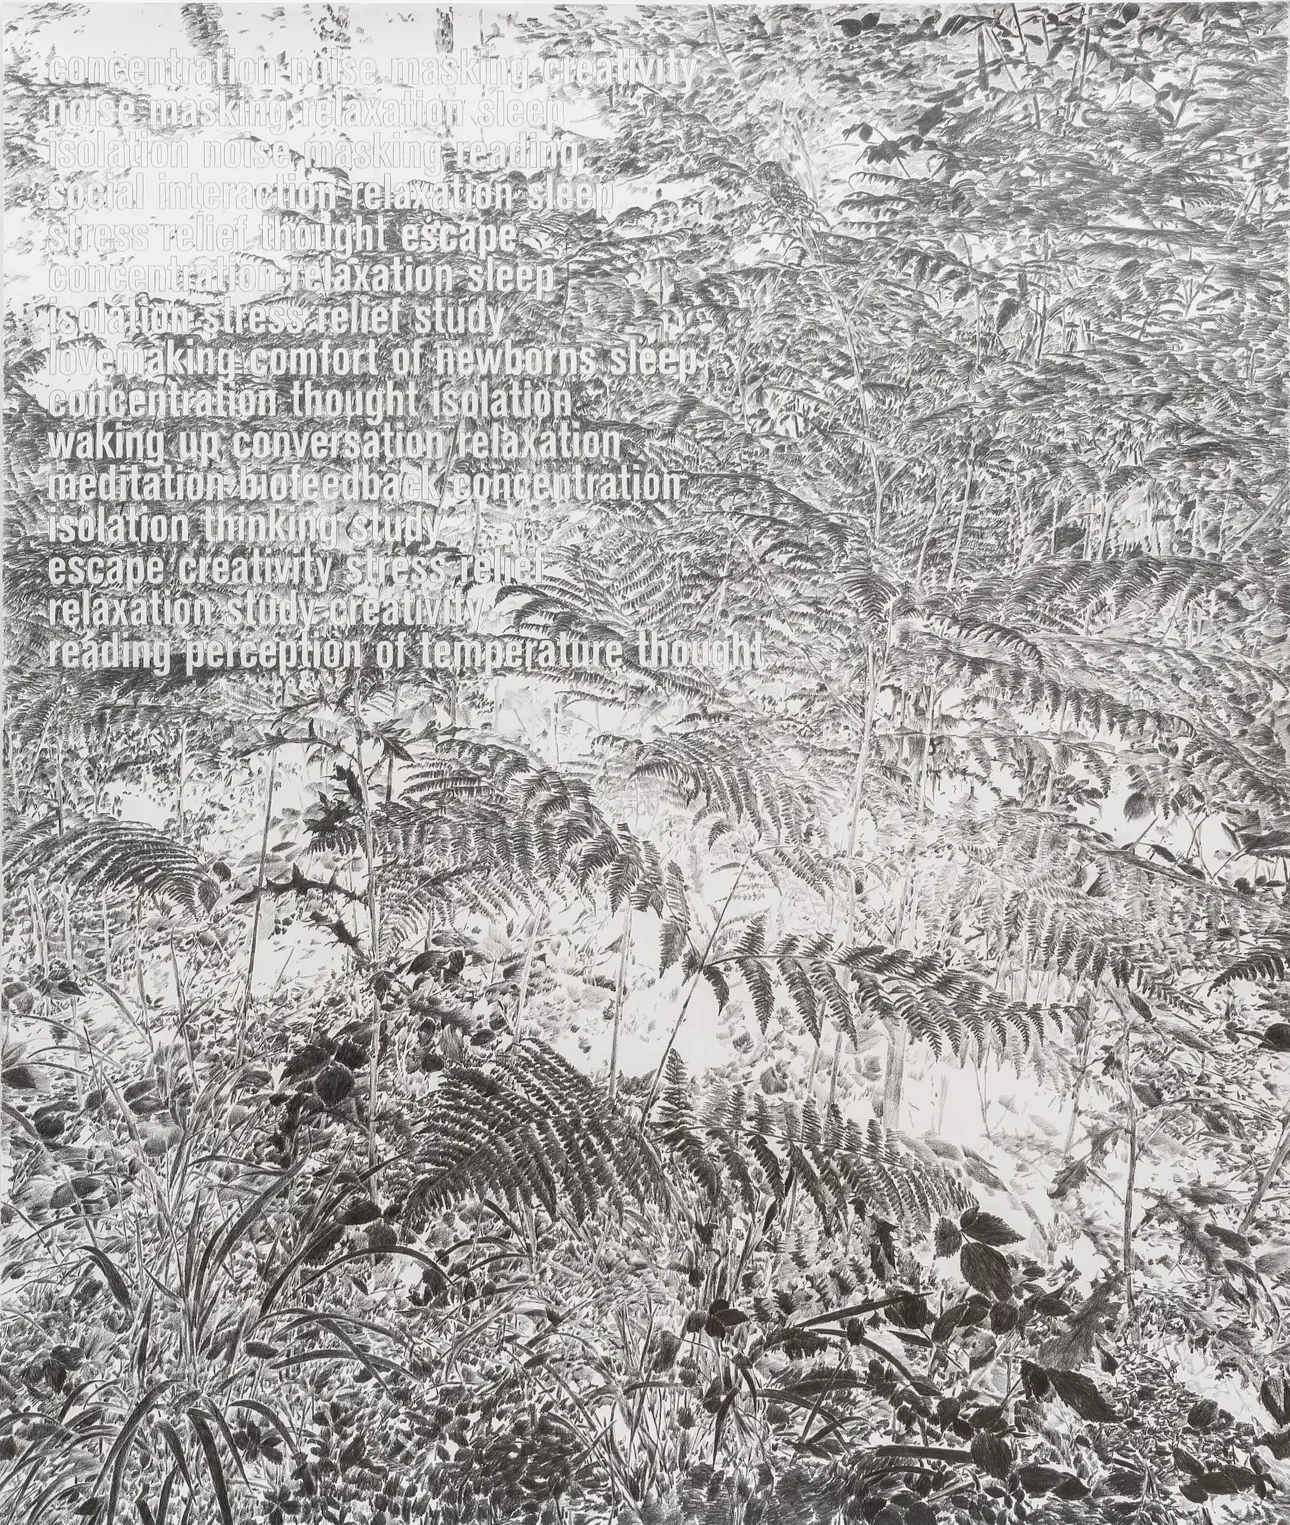 concentration noise masking creativity
noise masking relaxation sleep
isolation noise masking reading
social interaction relaxation sleep
stress relief thought escape
concentration relaxation sleep
isolation stress relief study
lovemaking comfort of newborns sleep
concentration thought isolation
waking up conversation relaxation
meditation biofeedback concentration
isolation thinking study
escape creativity stress relief
relaxation study creativity
reading perception of temperature thought